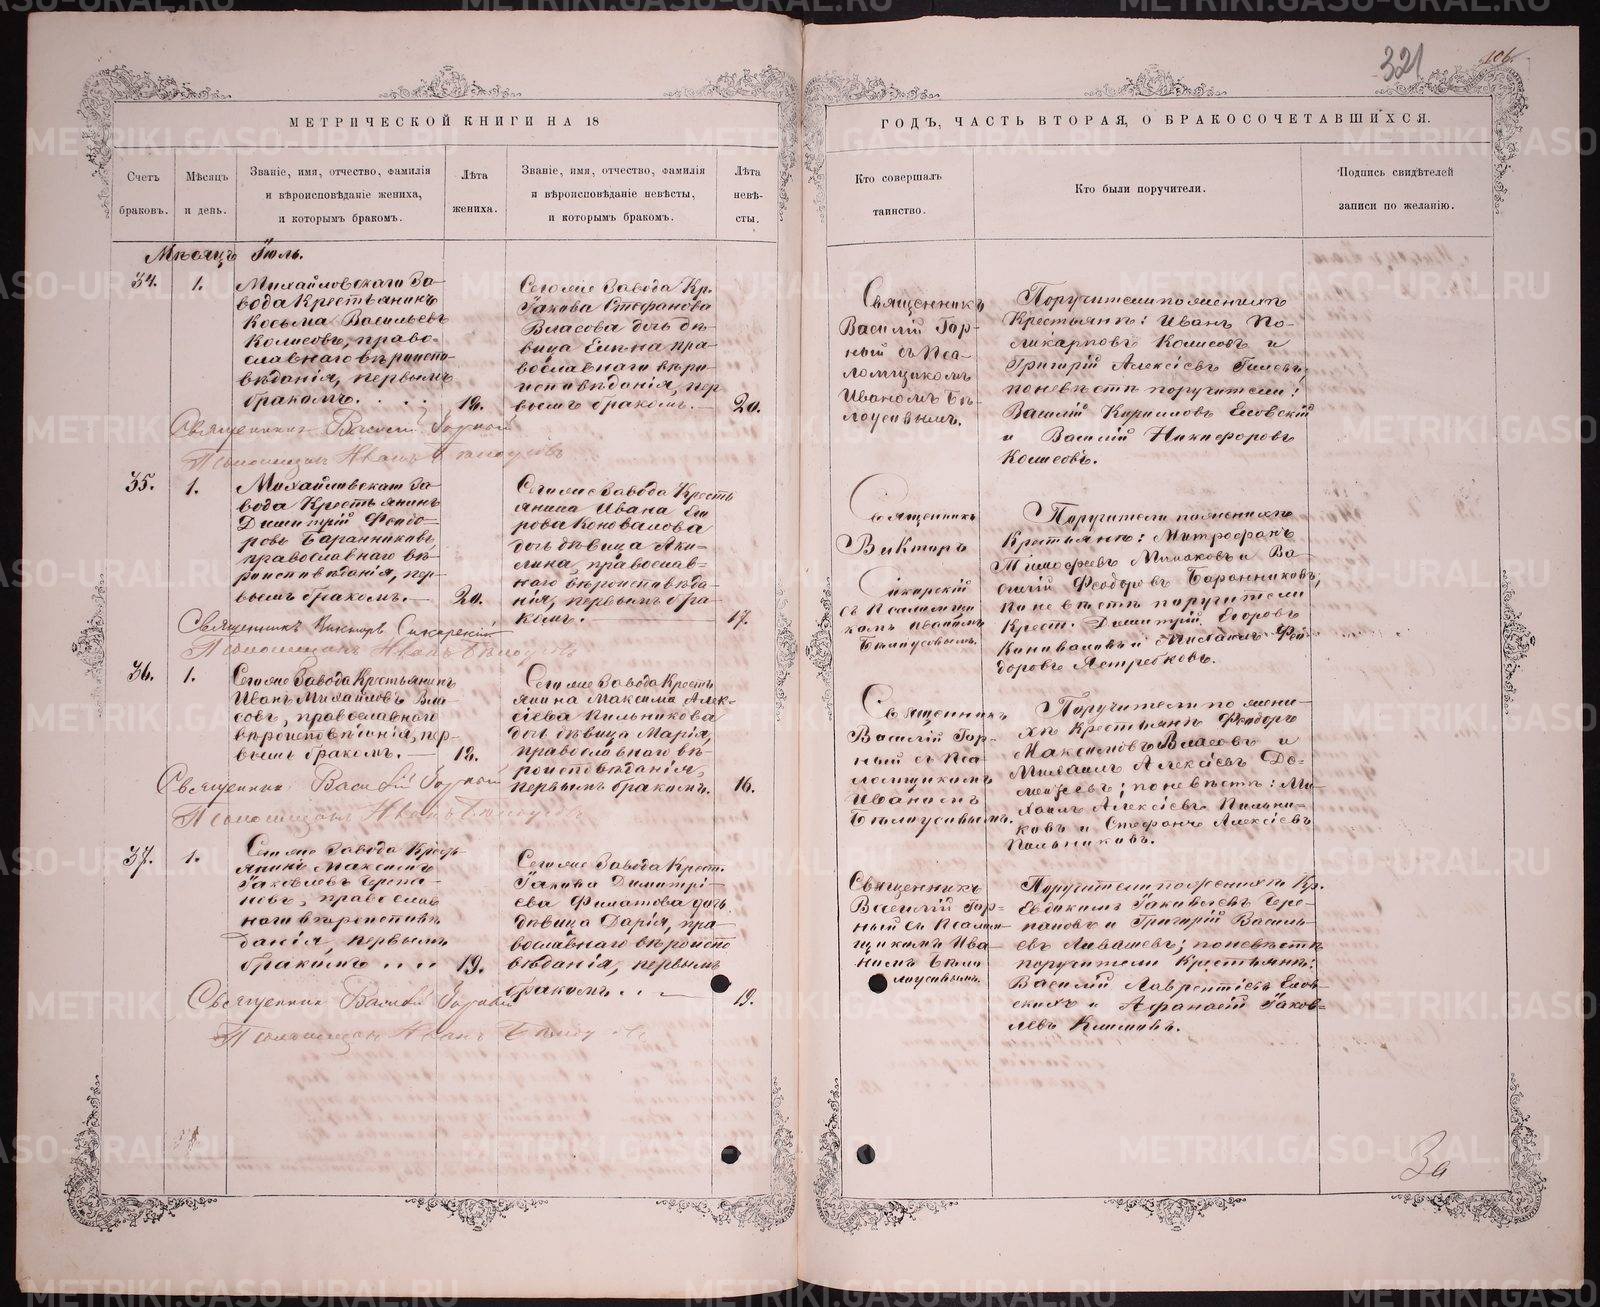 321
106.
МЕТРИЧЕСКОЙ КНИГИ НА 18
ГОДЪ, ЧАСТЬ ВТОРАЯ, О БРАКОСОЧЕТАВШИХСЯ.
Счетъ
браковъ.
Мѣсяцъ
и день.
Званіе, имя, отчество, фамилія
и вѣроисповѣданіе жениха,
и которымъ бракомъ.
Лѣта
жениха.
Званіе, имя, отчество, фамилія
и вѣроисповѣданіе невѣсты,
и которымъ бракомъ.
Лѣта
невѣ-
сты.
Кто совершалъ
таинство.
Кто были поручители.
Подпись свидѣтелей
записи по желанію.
Мѣсяцъ Іюль.
34.
1.
Михайловскаго За-
вода Крестьянинъ
Косьма Васильевъ
Колисовъ, право-
славнаго вѣроиспо-
вѣданія, первымъ
бракомъ.
18.
Сегоже Завода Кр.
Іакова Стефанова
Власова дочь дѣ-
вица Елена пра-
вославнаго вѣро-
исповѣданія, пер
вымъ бракомъ.
20.
Священникъ
Василій Гор-
ный съ Пса-
ломщикомъ
Иваномъ Бѣ-
лоусовымъ.
Поручители по женихѣ
Крестьяне: Иванъ По-
ликарповъ Колисовъ и
Григорій Алексѣевъ
по невѣстѣ поручители:
Василій Кириловъ Еловскій
и Василій Никифоровъ
Колисовъ.
Священникъ Василій Горный
Псаломщикъ Иванъ Бѣлоусовъ
35.
1.
Михайловскаго За-
вода Крестьянинъ
Димитрій Феодо-
ровъ Баранниковъ
православнаго вѣ-
роисповѣданія, пер-
вымъ бракомъ.
20.
Сегоже Завода Кресть
янина Ивана Его
рова Коновалова
дочь дѣвица Аки-
лина, православ-
наго вѣроисповѣда-
нія, первымъ бра-
комъ.
17.
Священникъ
Викторъ
Сикорскій
съ Псаломщи
комъ Иваномъ
Бѣлоусовымъ.
Поручители по женихѣ
Крестьяне: Митрофанъ
Тимофеевъ и Ва-
силій Феодоровъ Баранниковъ,
по невѣстѣ поручители
Крест. Димитрій Егоровъ
Коноваловъ и Михаилъ Фео-
доровъ Ястребковъ.
Священникъ Викторъ Сикорскій
Псаломщикъ Иванъ Бѣлоусовъ
36.
1.
Сегоже Завода Крестьянинъ
Иванъ Михайловъ Вла-
совъ, православнаго
вѣроисповѣданія, пер-
вымъ бракомъ.
18.
Сегоже Завода Кресть
янина Максима Алек-
сіева Пильникова
дочь дѣвица Марія,
православнаго вѣ-
роисповѣданія,
первымъ бракомъ.
16.
Священникъ
Василій Гор-
ный съ Пса
ломщикомъ
Иваномъ
Бѣлоусовымъ.
Поручители по жени-
хѣ Крестьяне Феодоръ
Максимовъ Власовъ и
Михаилъ Алексіевъ
по невѣстѣ: Ми-
хаилъ Алексіевъ Пильни-
ковъ и Стефанъ Алексіевъ
Пильниковъ.
Священникъ Василій Горный
Псаломщикъ Иванъ Бѣлоусовъ
37.
1.
Сегоже Завода Кресть-
янинъ Максимъ
Іаковлевъ Черепа-
новъ, православ
наго вѣроисповѣ
данія, первымъ
бракомъ
19.
Сегоже Завода Крест.
Іакова Димитрі-
ева Филатова дочь
дѣвица Дарія, пра-
вославнаго вѣроиспо
вѣданія, первымъ
бракомъ.
19.
Священникъ
Василій Гор-
ный съ Псалом
щикомъ Ива-
номъ Бѣло
лоусовымъ.
Поручители по женихѣ Кр.
Евдокимъ Іаковлевъ Чере-
пановъ и Григорій Василь-
евъ Ливашевъ; по невѣстѣ
поручители Крестьяне:
Василій Лаврентіевъ Елов-
скихъ и Афанасій Іаков-
левъ Климовъ.
Священникъ Василій Горный
Псаломщикъ Иванъ Бѣлоусовъ
За
METRIKI.GASO-URAL.RU